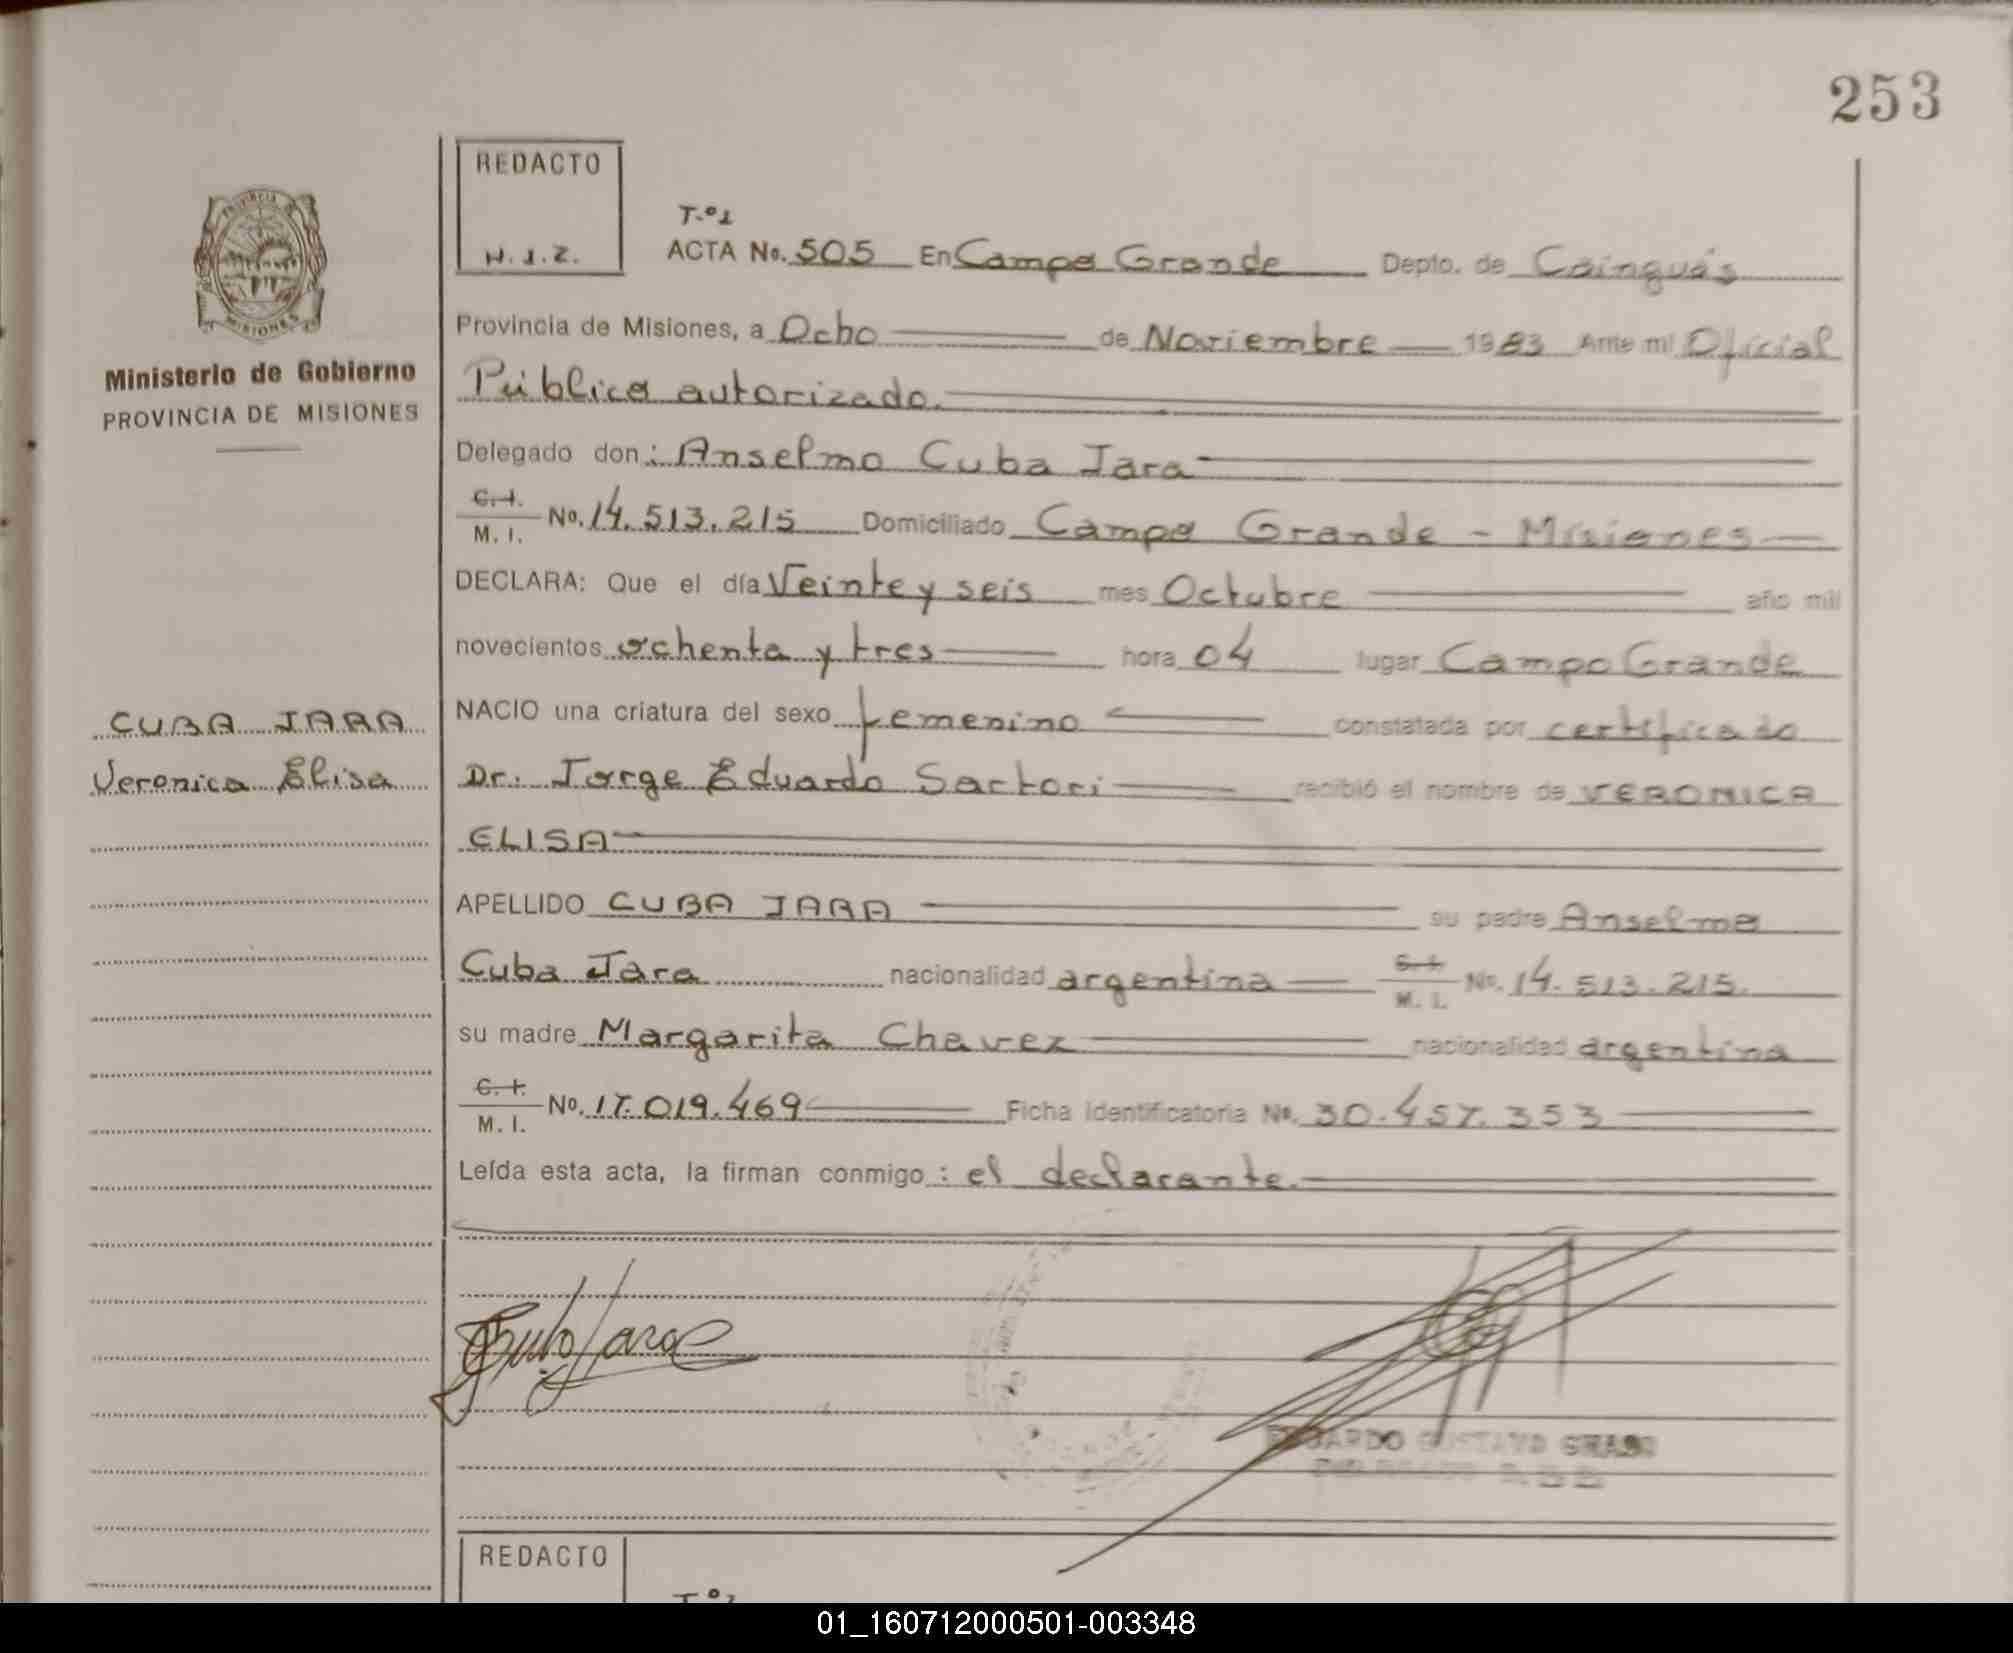 253
REDACTO
N.I.Z.
T.º1
ACTA No. 505 En Campo Grande Depto. de Cainguás
PROVINCIA MISIONES
Ministerio de Gobierno
PROVINCIA DE MISIONES
Provincia de Misiones, a Ocho de Noviembre 1983 Ante mí Oficial
Público autorizado.
Delegado don: Anselmo Cuba Jara
C.I. M.I. No. 14.513.215 Domiciliado Campo Grande - Misiones
DECLARA: Que el día Veinte y seis mes Octubre año mil
novecientos ochenta y tres hora 04 lugar Campo Grande
CUBA JARA
Veronica Elisa
NACIO una criatura del sexo femenino constatada por certificado
Dr. Jorge Eduardo Sartori recibió el nombre de VERONICA
ELISA
APELLIDO CUBA JARA su padre Anselmo
Cuba Jara nacionalidad argentina C.I. M.I. No. 14.513.215.
su madre Margarita Chavez nacionalidad argentina
C.I. M.I. No. 17.019.469 Ficha identificatoria No. 30.457.353
Leída esta acta, la firman conmigo: el declarante.
Cuba Jara
EDUARDO GUSTAVO
REDACTO
T.º1
01_160712000501-003348